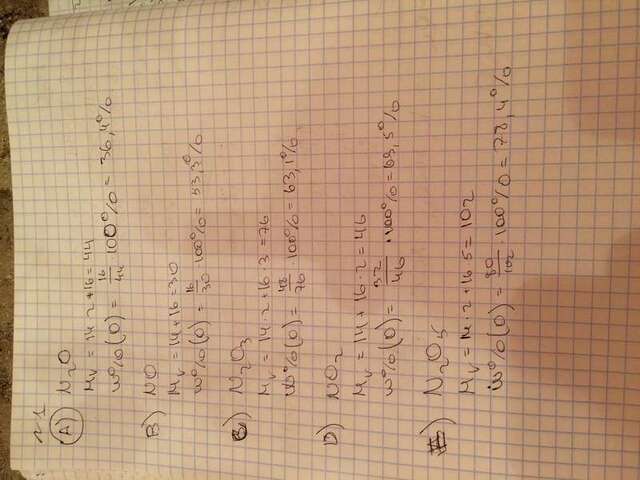 №1
A) N₂O
Mᵣ = 14·2+16=44
w%(O) = 16/44 ·100% = 36,4%
B) NO
Mᵣ = 14+16=30
w%(O) = 16/30 ·100% = 53,3%
C) N₂O₃
Mᵣ = 14·2+16·3=76
w%(O) = 48/76 ·100% = 63,1%
D) NO₂
Mᵣ = 14+16·2=46
w%(O) = 32/46 ·100% = 69,5%
E) N₂O₅
Mᵣ = 14·2+16·5=102
w%(O) = 80/102 ·100% = 78,4%